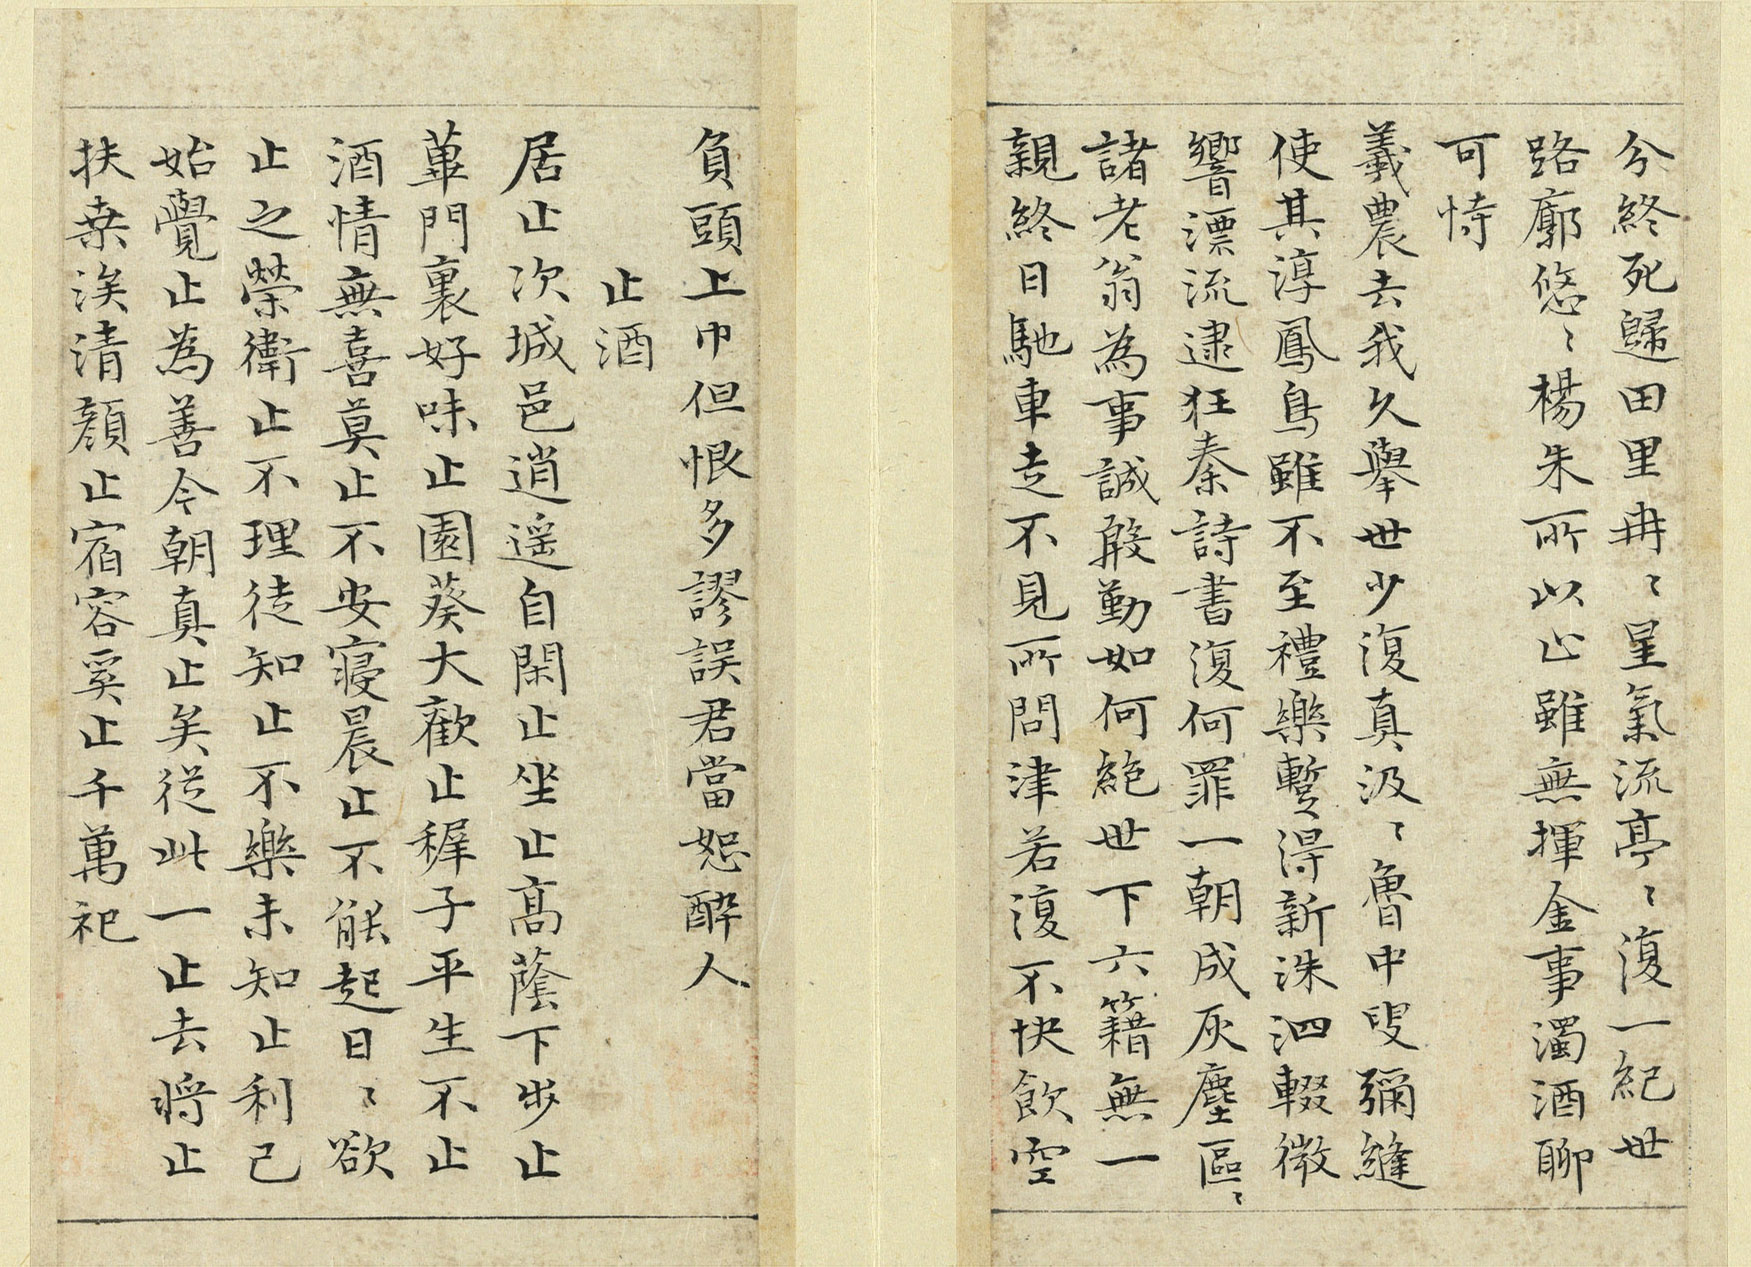 兮終死歸田里冉〻星氣流亭〻復一紀世
路廓悠〻楊朱所以止雖無揮金事濁酒聊
可恃
羲農去我久舉世少復真汲〻魯中叟彌縫
使其淳鳳鳥雖不至禮樂蹔得新洙泗輟微
響漂流逮狂秦詩書復何罪一朝成灰塵區〻
諸老翁為事誠殷勤如何絕世下六籍無一
親終日馳車走不見所問津若復不快飲空
負頭上巾但恨多謬誤君當恕醉人
止酒
居止次城邑逍遙自閑止坐止高蔭下步止
蓽門裏好味止園葵大歡止稺子平生不止
酒情無喜莫止不安寢晨止不能起日〻欲
止之榮衛止不理徒知止不樂未知止利己
始覺止為善今朝真止矣從此一止去將止
扶桒涘清顏止宿容奚止千萬祀